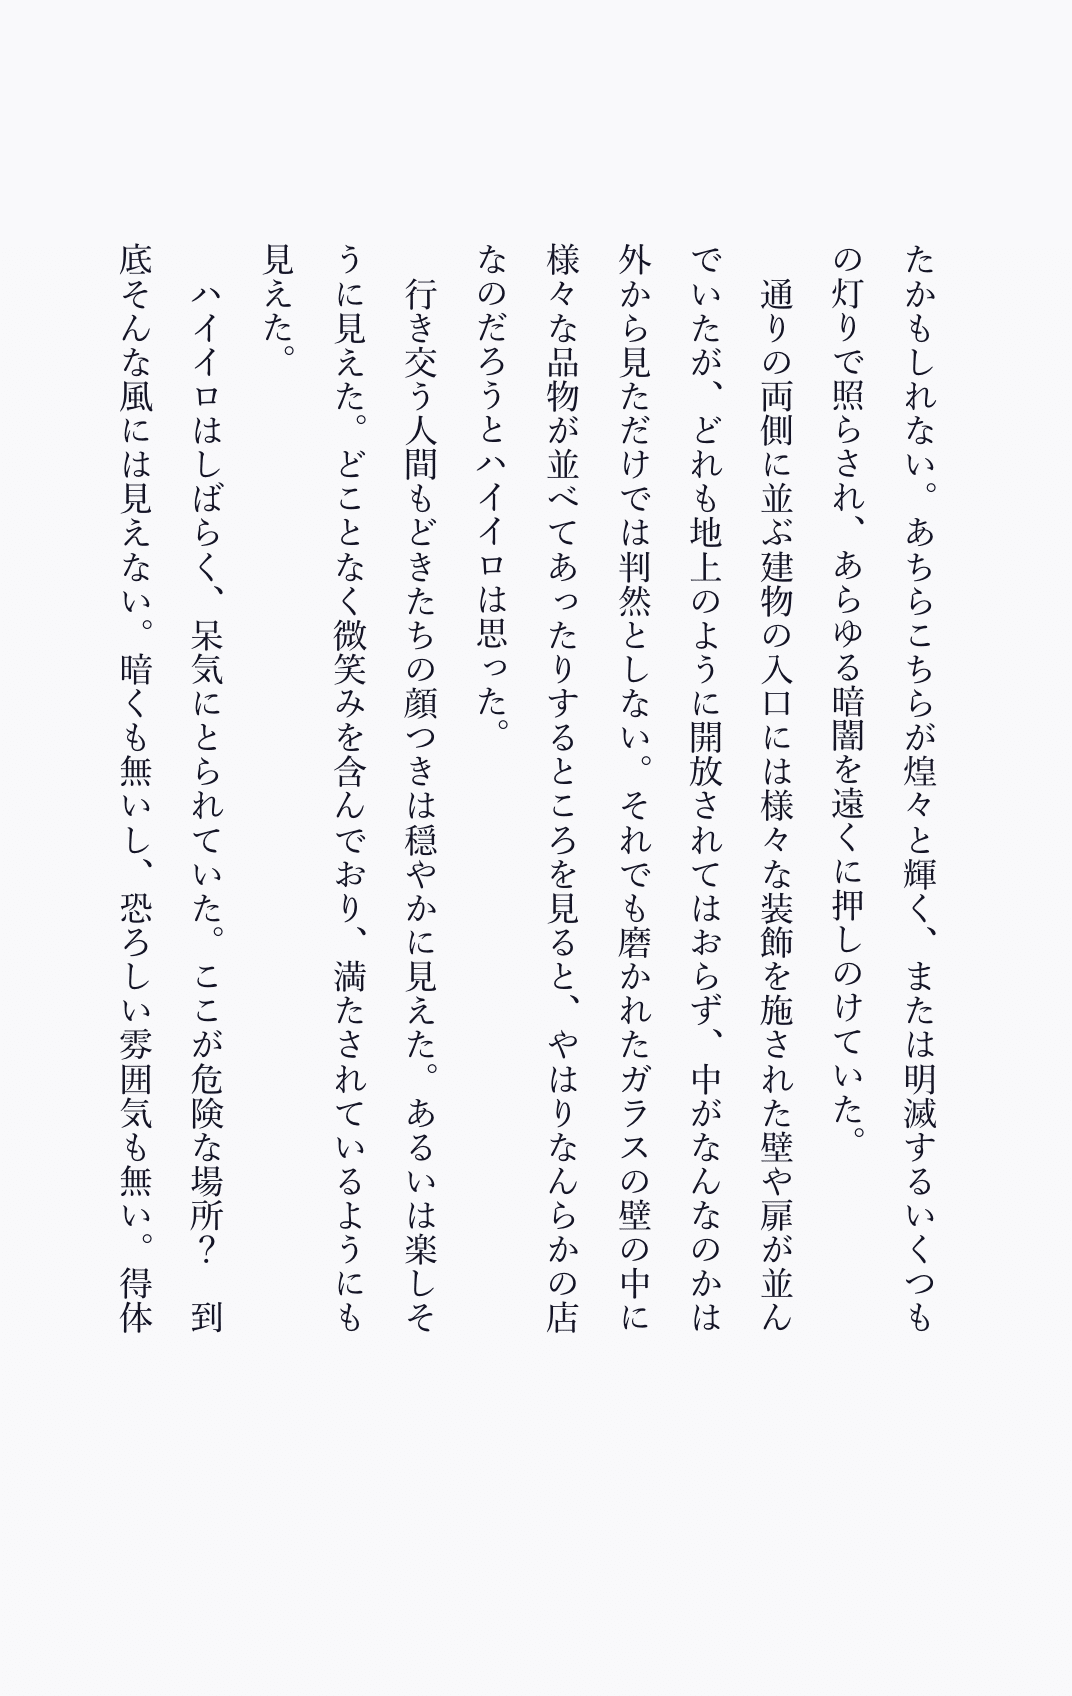 たかもしれない。あちらこちらが煌々と輝く、または明滅するいくつも
の灯りで照らされ、あらゆる暗闇を遠くに押しのけていた。
　通りの両側に並ぶ建物の入口には様々な装飾を施された壁や扉が並ん
でいたが、どれも地上のように開放されてはおらず、中がなんなのかは
外から見ただけでは判然としない。それでも磨かれたガラスの壁の中に
様々な品物が並べてあったりするところを見ると、やはりなんらかの店
なのだろうとハイイロは思った。
　行き交う人間もどきたちの顔つきは穏やかに見えた。あるいは楽しそ
うに見えた。どことなく微笑みを含んでおり、満たされているようにも
見えた。
　ハイイロはしばらく、呆気にとられていた。ここが危険な場所？　到
底そんな風には見えない。暗くも無いし、恐ろしい雰囲気も無い。得体